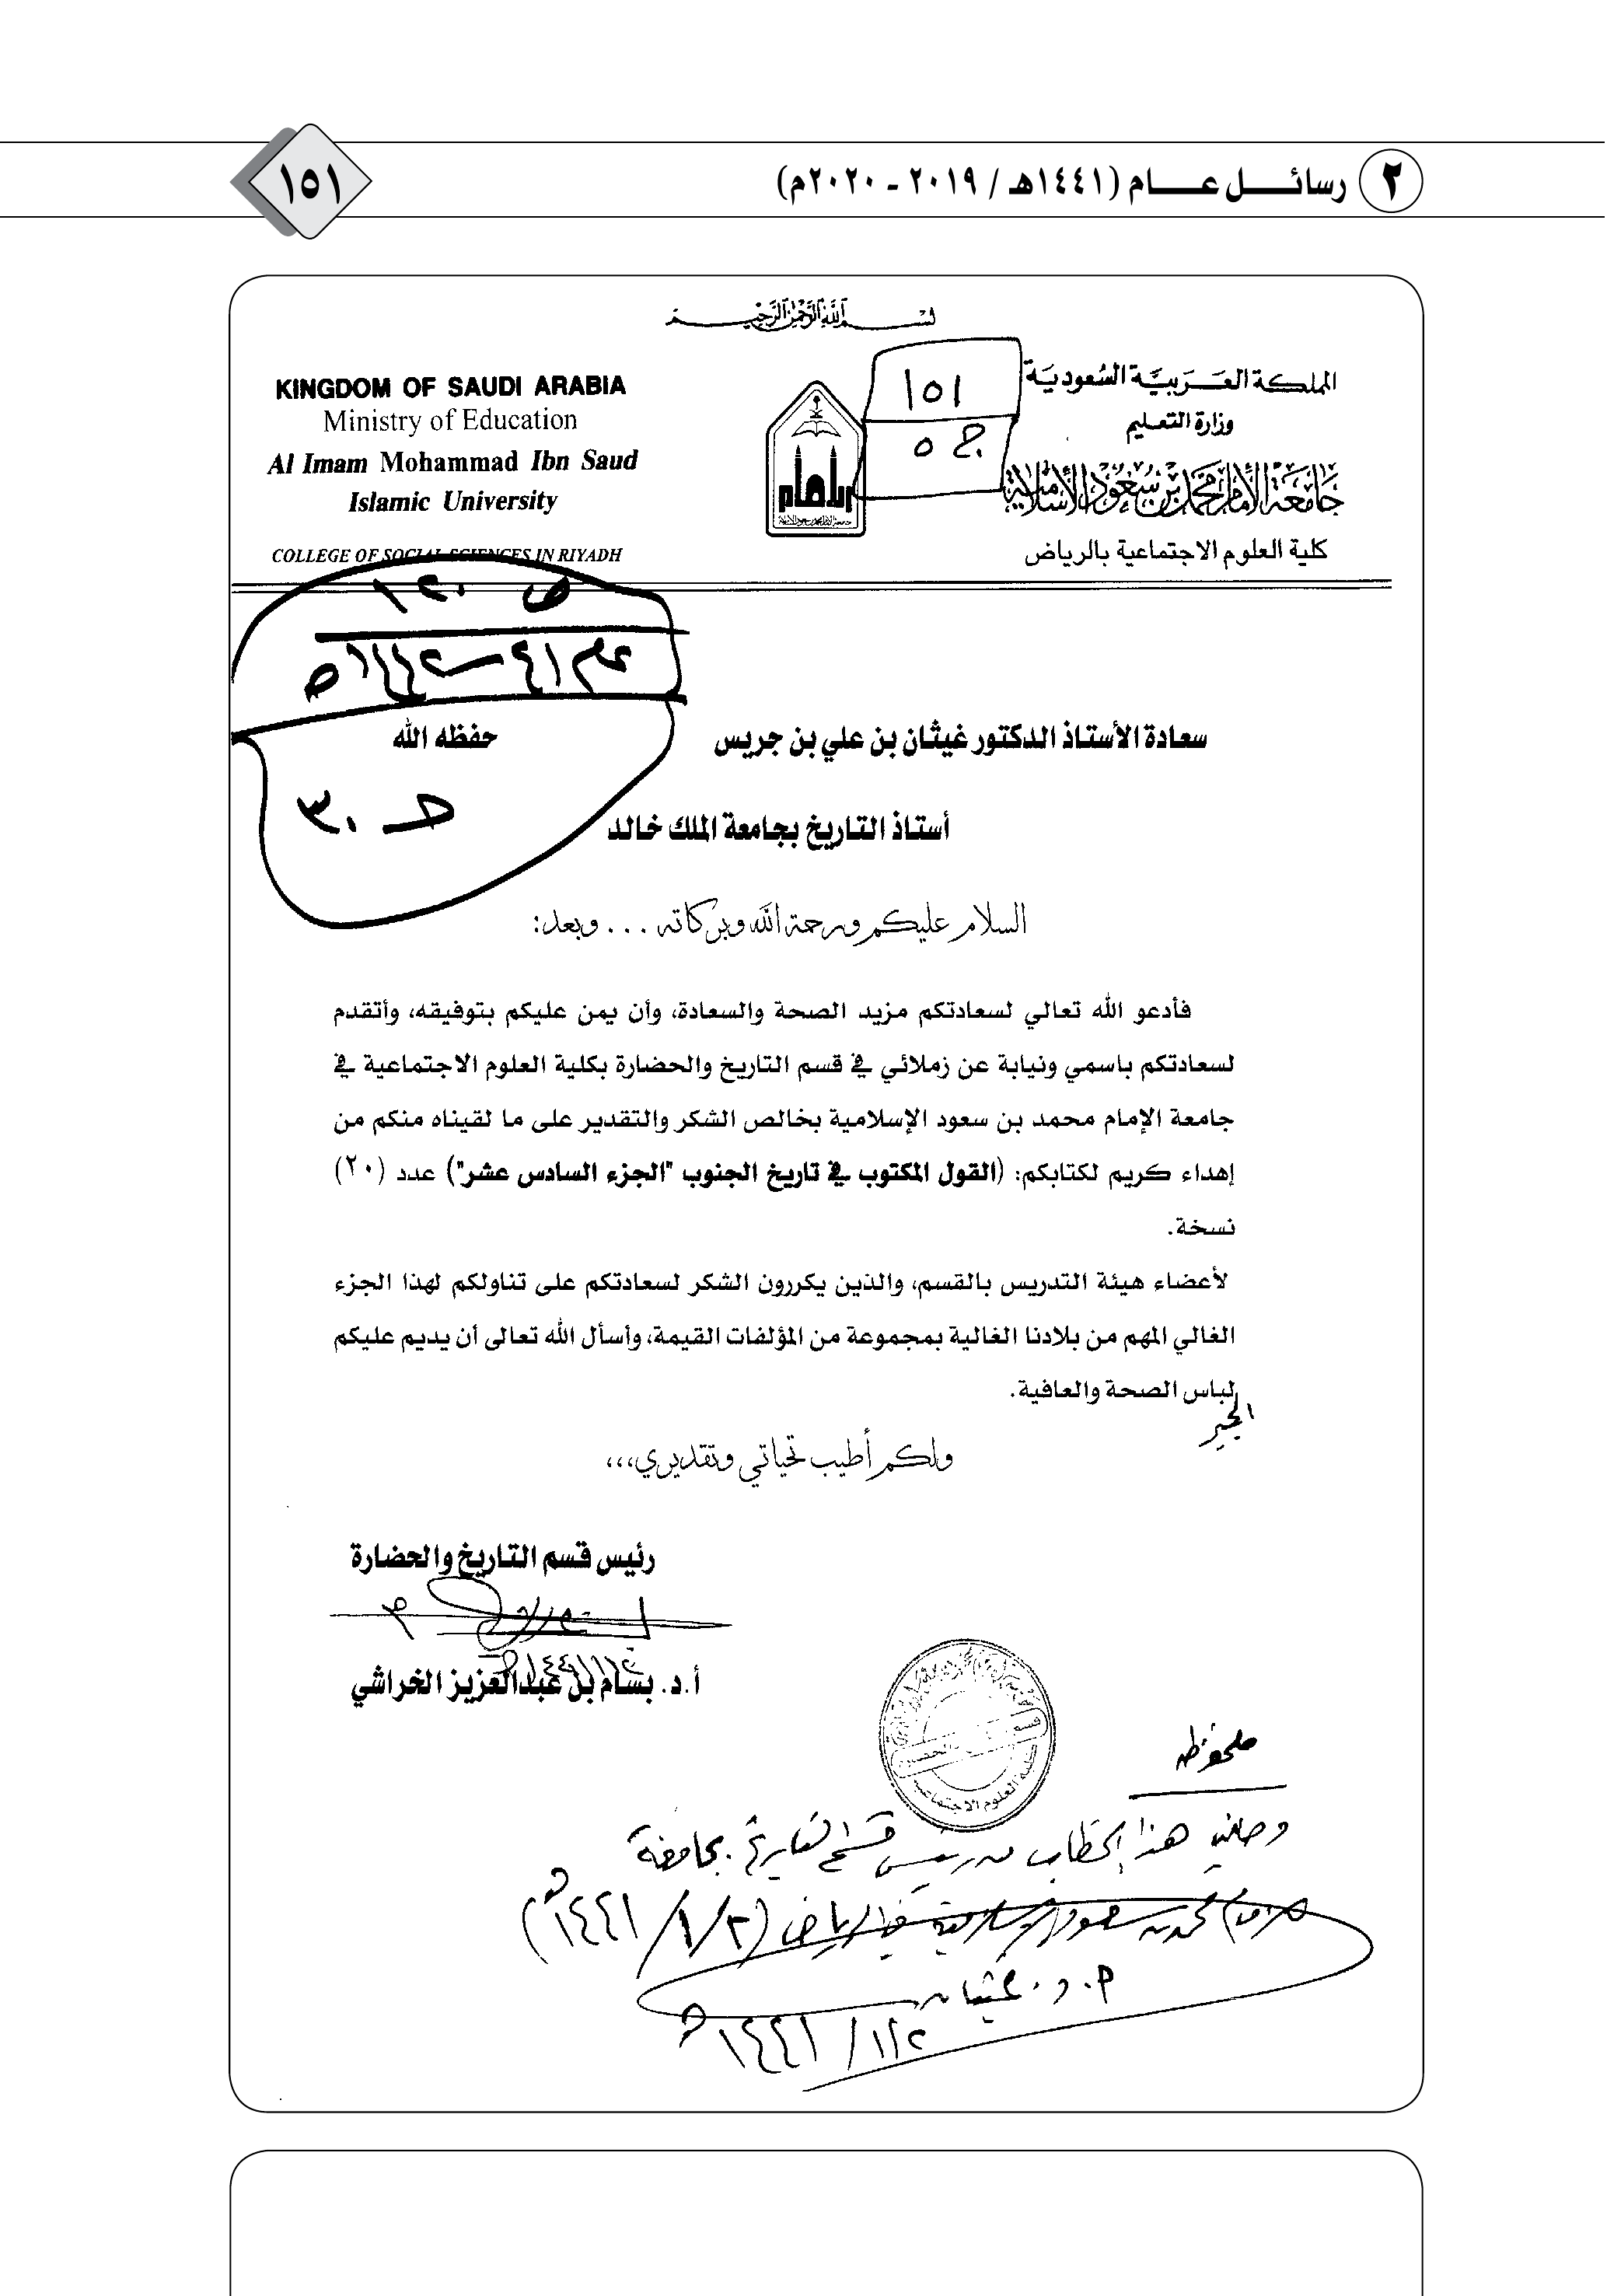 ٢ رسائل عام (١٤٤١هـ / ٢٠١٩ - ٢٠٢٠م)
١٥١
بسم الله الرحمن الرحيم
المملكة العربية السعودية
وزارة التعليم
جامعة الإمام محمد بن سعود الإسلامية
كلية العلوم الاجتماعية بالرياض
١٥١
ج ٥
KINGDOM OF SAUDI ARABIA
Ministry of Education
Al Imam Mohammad Ibn Saud
Islamic University
COLLEGE OF SOCIAL SCIENCES IN RIYADH
ص ١٢٠
عام ٤١-١٤٤٢هـ
حـ ٣٠
سعادة الأستاذ الدكتور غيثان بن علي بن جريس حفظه الله
أستاذ التاريخ بجامعة الملك خالد
السلام عليكم ورحمة الله وبركاته ... وبعد:
فأدعو الله تعالي لسعادتكم مزيد الصحة والسعادة، وأن يمن عليكم بتوفيقه، وأتقدم
لسعادتكم باسمي ونيابة عن زملائي في قسم التاريخ والحضارة بكلية العلوم الاجتماعية في
جامعة الإمام محمد بن سعود الإسلامية بخالص الشكر والتقدير على ما لقيناه منكم من
إهداء كريم لكتابكم: (القول المكتوب في تاريخ الجنوب "الجزء السادس عشر") عدد (٢٠)
نسخة.
لأعضاء هيئة التدريس بالقسم، والذين يكررون الشكر لسعادتكم على تناولكم لهذا الجزء
الغالي المهم من بلادنا الغالية بمجموعة من المؤلفات القيمة، وأسأل الله تعالى أن يديم عليكم
لباس الصحة والعافية.
ولكم أطيب تحياتي وتقديري،،،
رئيس قسم التاريخ والحضارة
أ.د. بسام بن عبدالعزيز الخراشي
كلية العلوم الاجتماعية
ملحوظة
وصلني هذا الخطاب من رئيس قسم التاريخ بجامعة
الإمام محمد بن سعود الإسلامية في الرياض (٢/١/١٤٤١هـ)
أ.د. غيثان
٢/١/١٤٤١هـ